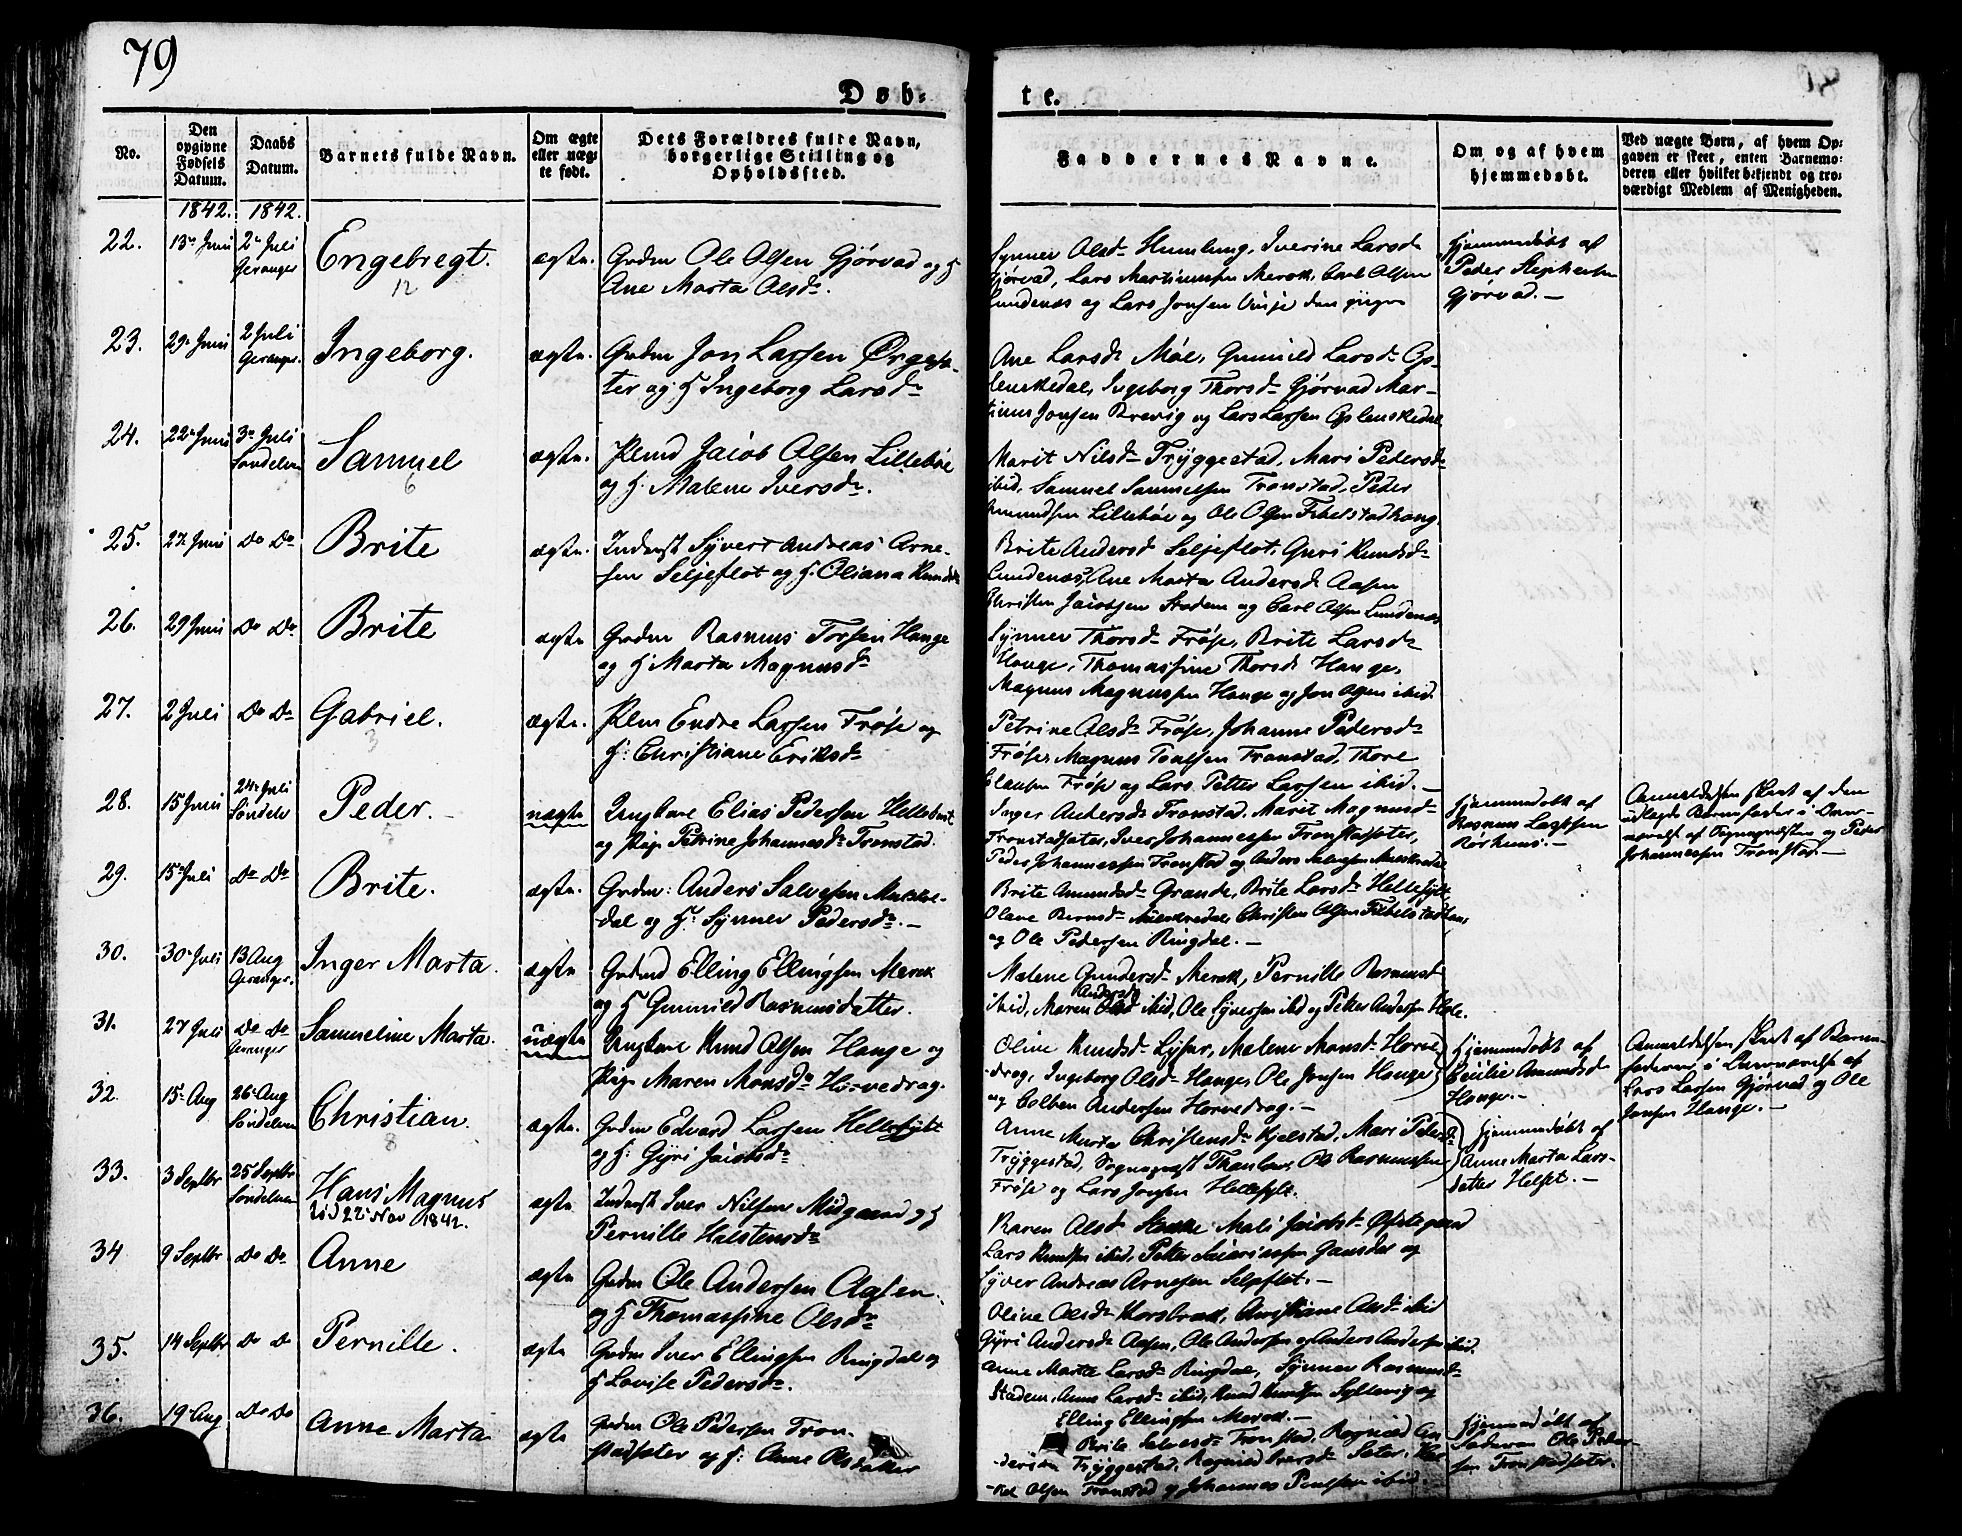 79
Døb-
te.
No.
Den opgivne Fødsels Datum.
Daabs Datum.
Barnets fulde Navn.
Om ægte eller uæg- te født.
Dets Forældres fulde Navn, borgerlige Stilling og Opholdssted.
Faddernes Navne.
Om og af hvem hjemmedøbt.
Ved uægte Børn, af hvem Op- gaven er skeet, enten Barnemo- deren eller hvilket bekjendt og tro- værdigt Medlem af Menigheden.
1842. 1842.
22. 13 Juni 2 Juli Geranger Engebregt. 12 ægte.
Grdm Ole Olsen Gjørvad og H
Ane Marta Olsd.
Synner Olsd Humlung, Iverine Larsd
Gjørvad, Lars Martinussen Merok, Carl Olsen
Lundenæs og Lars Jonsen Vinje den yngre
Hjemmedøbt af
Peder Stephensen
Gjørvad.—
23. 29 Juni 2 Juli Geranger. Ingeborg. ægte.
Grdm Jon Larsen Ørge-
ter og H Ingeborg Larsd
Ane Larsd Møe, Gunnild Larsd Op-
lenskedal, Ingeborg Thorsd Gjørvad Mar-
tinus Jonsen Brevig og Lars Larsen Oplenskedal
24. 22 Juni 3 Juli Søndelven Samuel 6 ægte.
Plmd Jacob Olsen Lillebøe
og H. Malene Iversd.
Marit Nilsd Tryggestad, Mari Pedersd
ibid, Samuel Samuelsen Tronstad, Peder
Amundsen Lillebøe og Ole Olsen Fibelstadhoug.
25. 27 Juni Do Do Brite ægte.
Inderst Syvert Andreas Arne-
sen Seljeflot og H. Oliana Knudsd
Brite Andersd Seljeflot, Guri Knudsd
Lundenæs, Ane Marta Andersd Aasen
Christen Jacobsen Stadem og Carl Olsen Lundenæs
26. 29 Juni Do Do Brite ægte
Grdm Rasmus Torsen Hauge
og H Marta Magnusd
Synner Thorsd Frøse, Brite Larsd
Hauge, Thomassine Thorsd Hauge,
Magnus Magnussen Hauge og Jon Olsen ibid.
27. 2 Juli Do Do Gabriel. 3 ægte.
Plm Endre Larsen Frøse og
H: Christiane Eriksd
Petrine Olsd Frøse, Johanne Pedersd
Frøse, Magnus Tronstad, Thore
Clausen Frøse og Lars Petter Larsen ibid.—
28. 15 Juni 24 Juli Søndelv Peder.— 5 uægte
Ungkarl Elias Pedersen Hellebust
og Pige Petrine Johannesd Tronstad.
Inger Andersd Tronstad, Marit Magnusd
Tronstadsæter, Iver Johannessen Tronstadsæter,
Peder Johannessen Tronstad og Anders Salvesen
Hjemmedøbt af
Rasmus Larssen
Rørhuus.—
Anmeldelsen skeet af den
udlagte Barnefader i Over-
værelse af Sognepræsten og Peder
Johannessen Tronstad.—
29. 15 Juli Do Do Brite. ægte.
Grdm: Anders Salvesen
dal og H: Synner Pedersd.—
Brite Amundsd Grande, Brite Larsd Hellesylt
Olave Berntsd Christen Olsen Fibelstadhoug,
og Ole Pedersen Ringdal.—
30. 30 Juli 13 Aug Geranger. Inger Marta. ægte
Grdmd Elling Ellingsen Merok
og H Gunnild Rasmusdatter.
Malene Gundersd Merok, Pernille Rasmusd
ibid, Maren Andersd ibid, Ole Syversen ibid og Petter Andersen Hole.
31. 27 Juli Do Do Geranger Samueline Marta. uægte
Ungkarl Knud Olsen Hauge og
Pige Maren Monsd Horvedrag.
Olive Knudsd Lyser, Malene Monsd Horve-
drag, Ingeborg Olsd Hauge, Ole Jonsen Hauge
og Colben Andersen Horvedrag.—
Hjemmedøbt af
Cecilie Amundsd
Hauge.—
Anmeldelsen skeet af Barne-
faderen i Overværelse af
Lars Larsen Gjørvad og Ole
Jonsen Hauge.—
32. 15 Aug 26 Aug Søndelven Christian. 8 ægte.
Grdm Edvard Larsen Hellesylt
og H: Gyri Jacobsd
Anne Marta Christensd Kjelstad, Mari Pedersd
Tryggestad, Sognepræst Ole Rasmussen
Frøse og Lars Jonsen Hellesylt.
Hjemmedøbt af
Anne Marta Lars-
datter Helset.—
33. 3 Septbr 25 Septbr Søndelven Hans Magnus
død 22 Nov 1842. ægte
Inderst Iver Nilsen Midgaard og H
Pernille Halstensd
Karen Olsd Mali Jacobsd Østegaard
Lars Knudsen ibid, Petter Jansdal og
Syver Andreas Arnesen Seljeflot.—
34 9 Septbr Do Do Anne ægte
Grdm Ole Andersen Aasen
og H Thomassine Olsd
Oline Olsd Korsbræk, Christiane Olsd ibid
Gyri Andersd Aasen, Ole Andersen og Anders Andersen ibid.
35. 14 Septbr Do Do Pernille. ægte
Grdm Iver Ellingsen Ringdal og
H Lovise Pedersd.
Anne Marta Larsd Ringdal, Synner Rasmusd
Stadem, Anne Larsd ibid, Knud Knudsen Syltevig og
Elling Ellingsen Merok.—
36. 19 Aug Do Do Anne Marta ægte
Grdm Ole Pedersen Tron-
stadsæter og H: Anne Olsdatter
Brite Salvesd Tronstad, Ragnild An-
dersen Tryggestad, Ragnild Iversd Sæter,
Olsen Tronstad og Johannes ibid.
Hjemmedøbt af
Faderen Ole Peder-
sen Tronstadsæter.